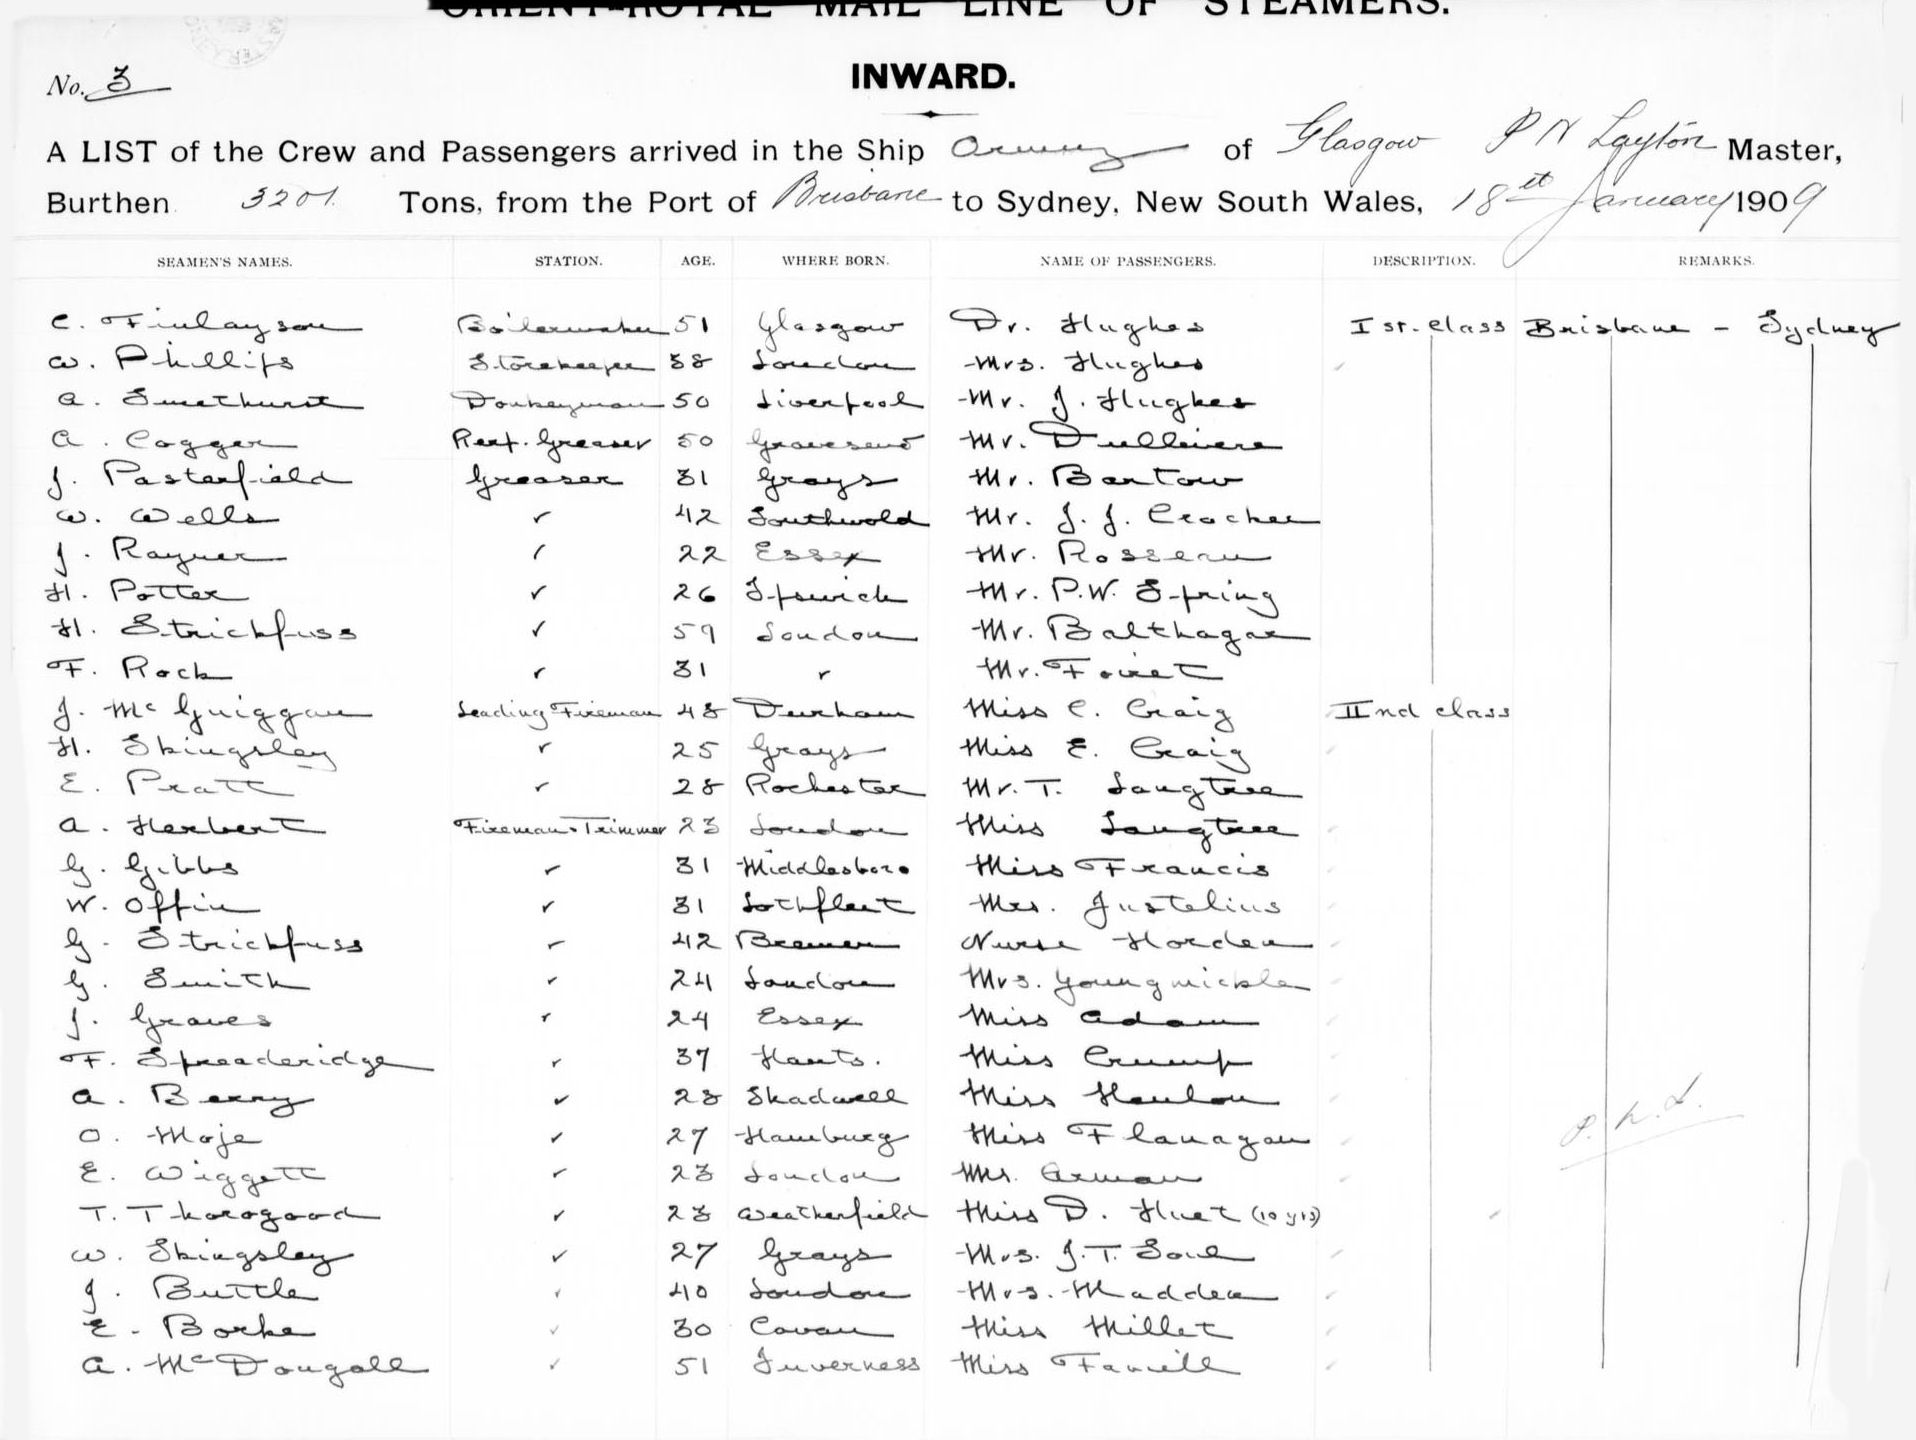 ORIENT-ROYAL MAIL LINE OF STEAMERS.
No. 3
INWARD.
A LIST of the Crew and Passengers arrived in the Ship of Glasgow P N Layton Master,
Burthen 3201 Tons, from the Port of Brisbane to Sydney, New South Wales, 18th January 1909
SEAMEN'S NAMES. STATION. AGE. WHERE BORN. NAME OF PASSENGERS. DESCRIPTION. REMARKS.
C. Finlayson Boilermaker 51 Glasgow Dr. Hughes Ist. Class Brisbane - Sydney
W. Phillips Storekeeper 38 London Mrs. Hughes
A. Smethurst Donkeyman 50 Liverpool Mr. J. Hughes
A. Cogger Greaser 50 Gravesend Mr.
J. Pasterfield Greaser 31 Grays Mr. Bartow
W. Wells 42 Southwold Mr. J. J. Crocker
J. Rayner 22 Essex Mr. Rosseau
H. Potter 26 Ipswich Mr. P.W. Spring
H. Strickfuss 59 London Mr. Balthagar
F. Rock 31 Mr. Foiret
J. McGuiggan Leading Fireman 48 Durham Miss C. Craig IInd class
H. Skingsley 25 Grays Miss E. Craig
E. Pratt 28 Rochester Mr. T. Langtree
A. Herbert Fireman & Trimmer 23 London Miss Langtree
G. Gibbs 31 Middlesboro Miss Francis
W. Offin 31 Sothfleet Mrs. Justelius
G. Strickfuss 42 Bremen Nurse Horden
G. Smith 24 London Mrs. Youngmickle
J. Graves 24 Essex Miss Adam
F. Spreaderidge 37 Hants. Miss Crump
A. Berry 28 Shadwell Miss Hanlon
O. Moje 27 Hamburg Miss Flanagan
E. Wiggett 23 London Arman
T. Thorogood 23 Weatherfield Miss D. Huet (10 yrs)
W. Skingsley 27 Grays Mrs. J. T. Soul
J. Buttle 40 London Mrs. Madden
E. Borke 30 Cavan Miss Millet
A. McDougall 51 Inverness Miss